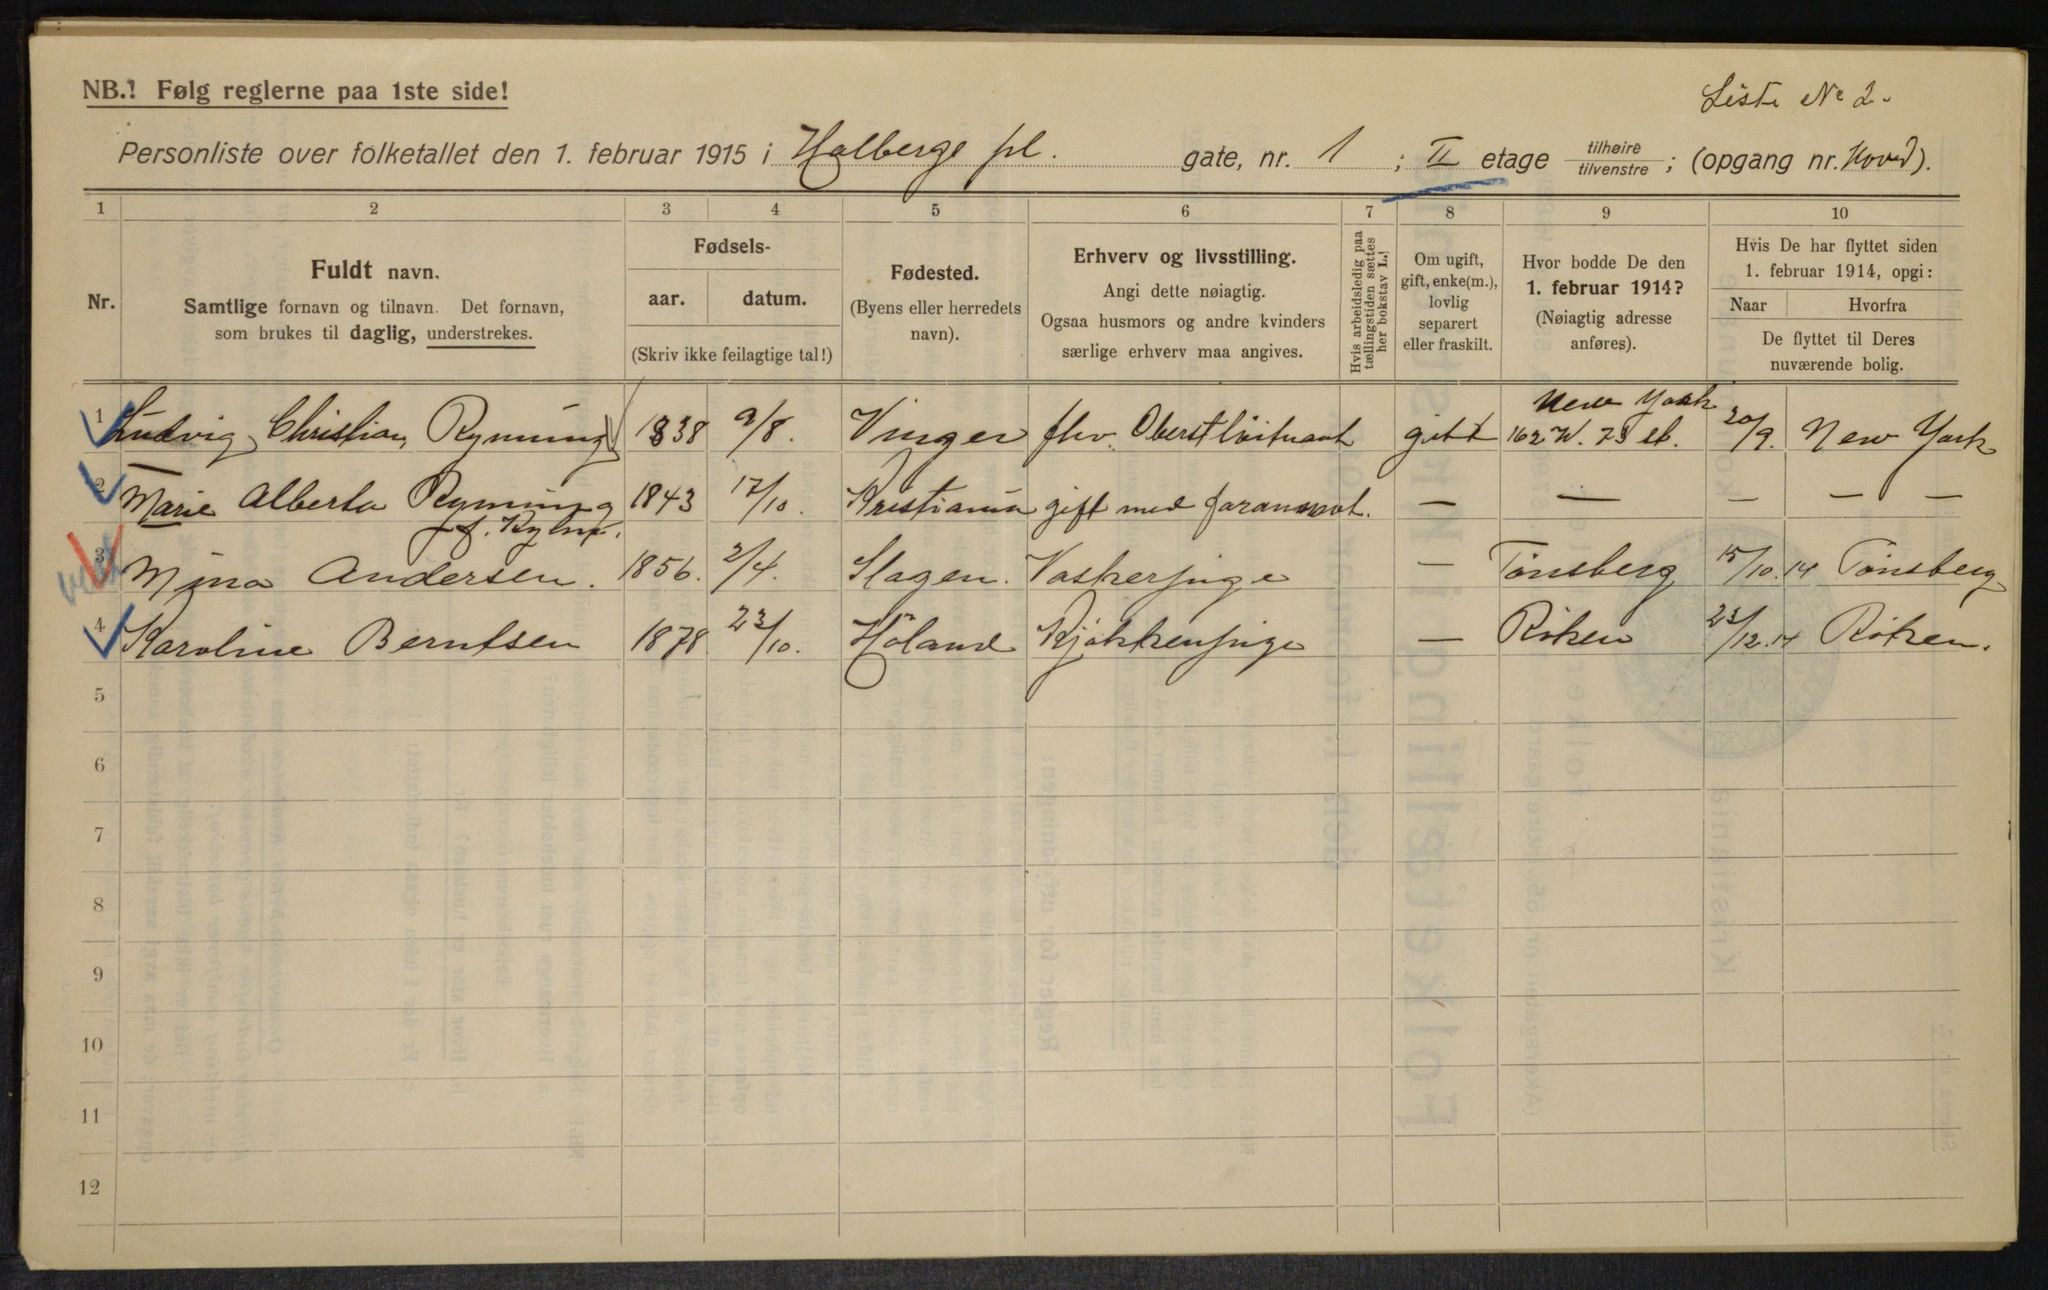 NB.! Følg reglerne paa 1ste side!
Liste No 2.
Personliste over folketallet den 1. februar 1915 i Holbergs pl. gate, nr. 1 ; II etage tilhøire tilvenstre ; (opgang nr. Hoved).
1 2 3 4 5 6 7 8 9 10
Nr.
Fuldt navn.
Samtlige fornavn og tilnavn. Det fornavn,
som brukes til daglig, understrekes.
Fødsels-
aar. datum.
(Skriv ikke feilagtige tal!)
Fødested.
(Byens eller herredets
navn).
Erhverv og livsstilling.
Angi dette nøiagtig.
Ogsaa husmors og andre kvinders
særlige erhverv maa angives.
Hvis arbeidsledig paa
tællingstiden sættes
her bokstav L.!
Om ugift,
gift, enke(m.),
lovlig
separert
eller fraskilt.
Hvor bodde De den
1. februar 1914?
(Nøiagtig adresse
anføres).
Hvis De har flyttet siden
1. februar 1914, opgi:
Naar Hvorfra
De flyttet til Deres
nuværende bolig.
1 Ludvig Christian Rynning 1838 9/8. Vinger fhv. Oberstløitnant gift New York 162 W. 73 st. 20/9. New York
2 Marie Alberta Rynning 1843 17/10. Kristiania gift med forannævnt. — — — — —
3 Mina Andersen. 1856. 2/4. Slagen. Vaskerpige — Tønsberg 15/10.14 Tønsberg
4 Karoline Berntsen 1878 23/10. Høland Kjøkkenpige — Røken 23/12.14 Røken.
5
6
7
8
9
10
11
12